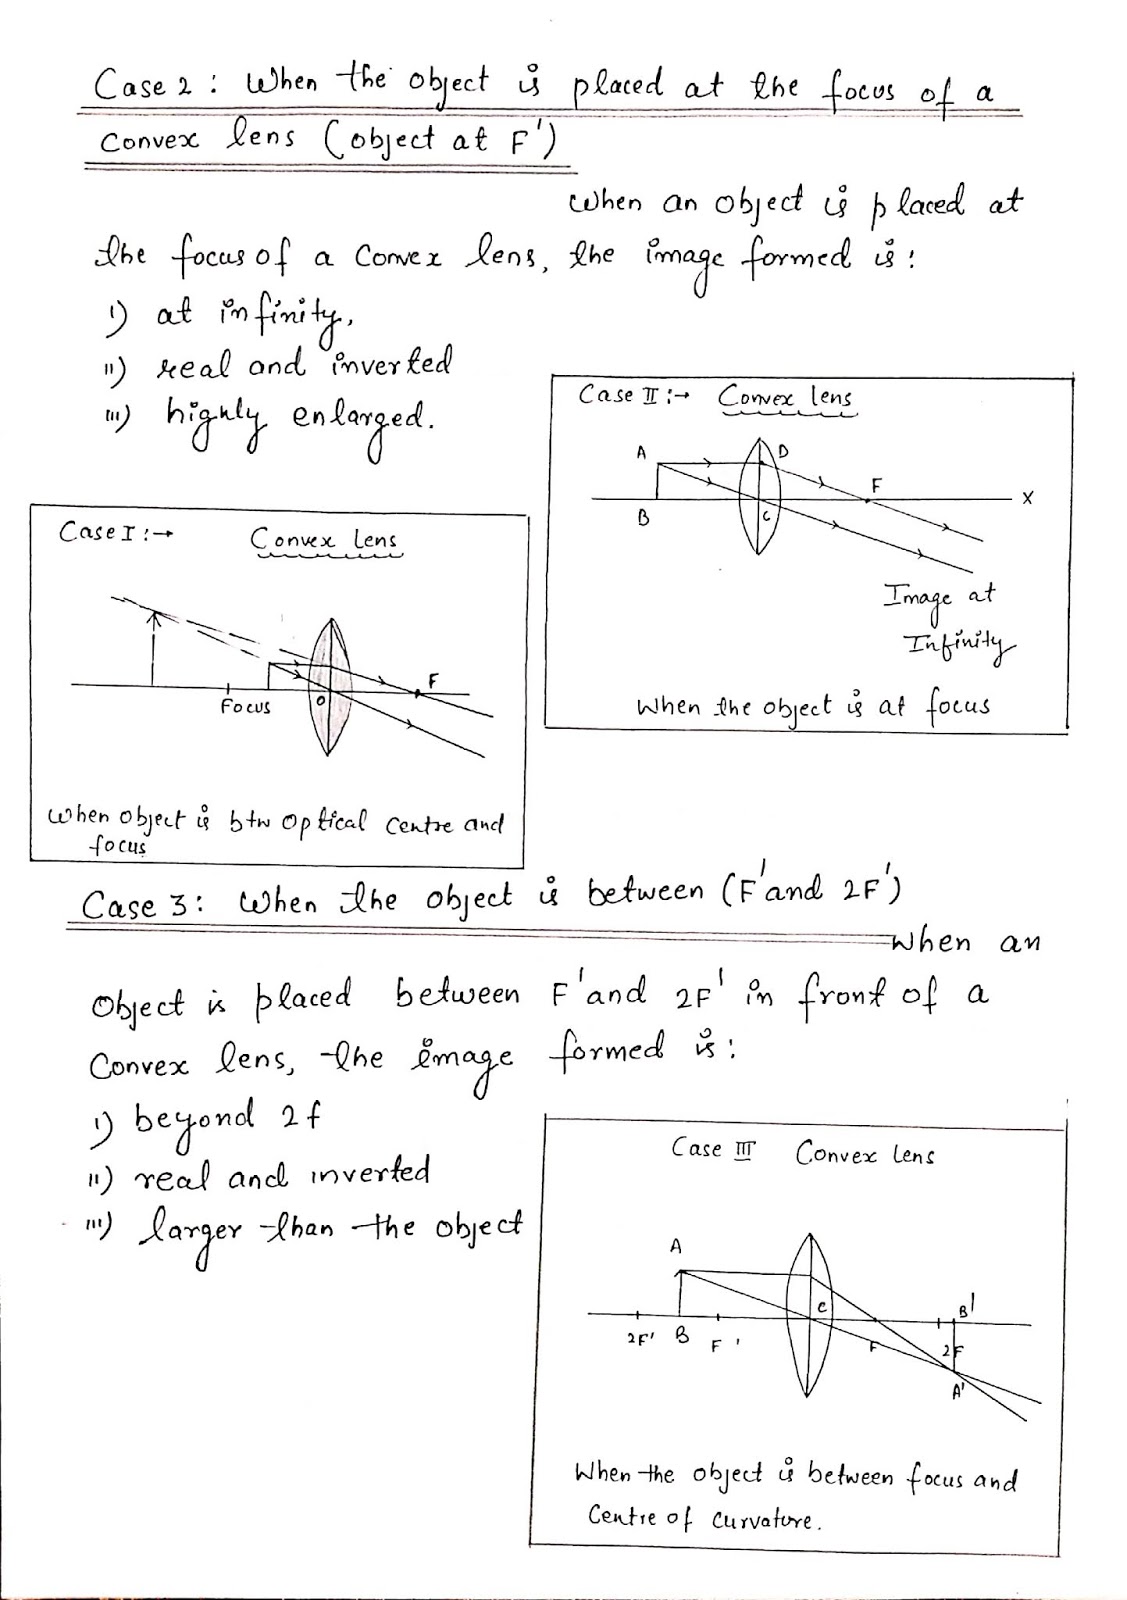 Case 2 : When the object is placed at the focus of a
Convex lens (object at F')
When an object is placed at
the focus of a Convex lens, the image formed is :
i) at infinity,
ii) real and inverted
iii) highly enlarged.
Case II :→ Convex lens
A
D
F
X
B
C
Image at
Infinity
When the object is at focus
Case I :→ Convex Lens
F
Focus
O
When Object is btw Optical Centre and
focus
Case 3 : When the object is between (F' and 2F')
When an
Object is placed between F' and 2F' in front of a
Convex lens, the image formed is :
i) beyond 2f
ii) real and inverted
iii) larger than the object
Case III Convex Lens
A
C
B'
2F' B F'
F
2F
A'
When the object is between focus and
Centre of Curvature.